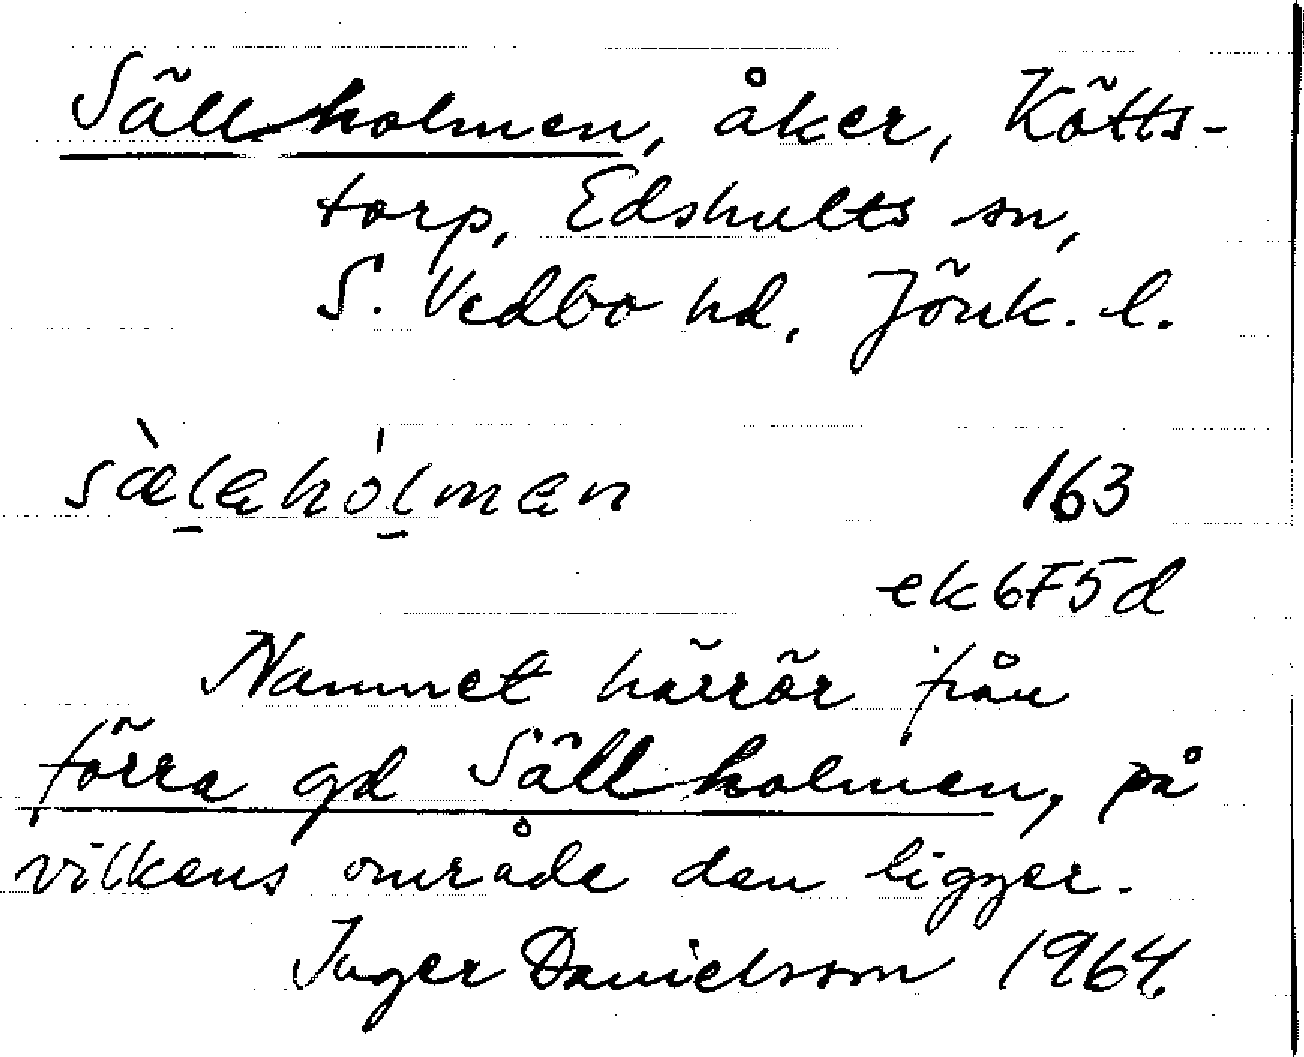 Sällholmen, åker, Kötts-
torp, Edshults sn,
S. Vedbo hd, Jönk. l.
sæ̀lahólman 163
ek6F5d
Namnet härrör från
förra gd Sällholmen, på
vilkens område den ligger.
Inger Danielsson 1964.